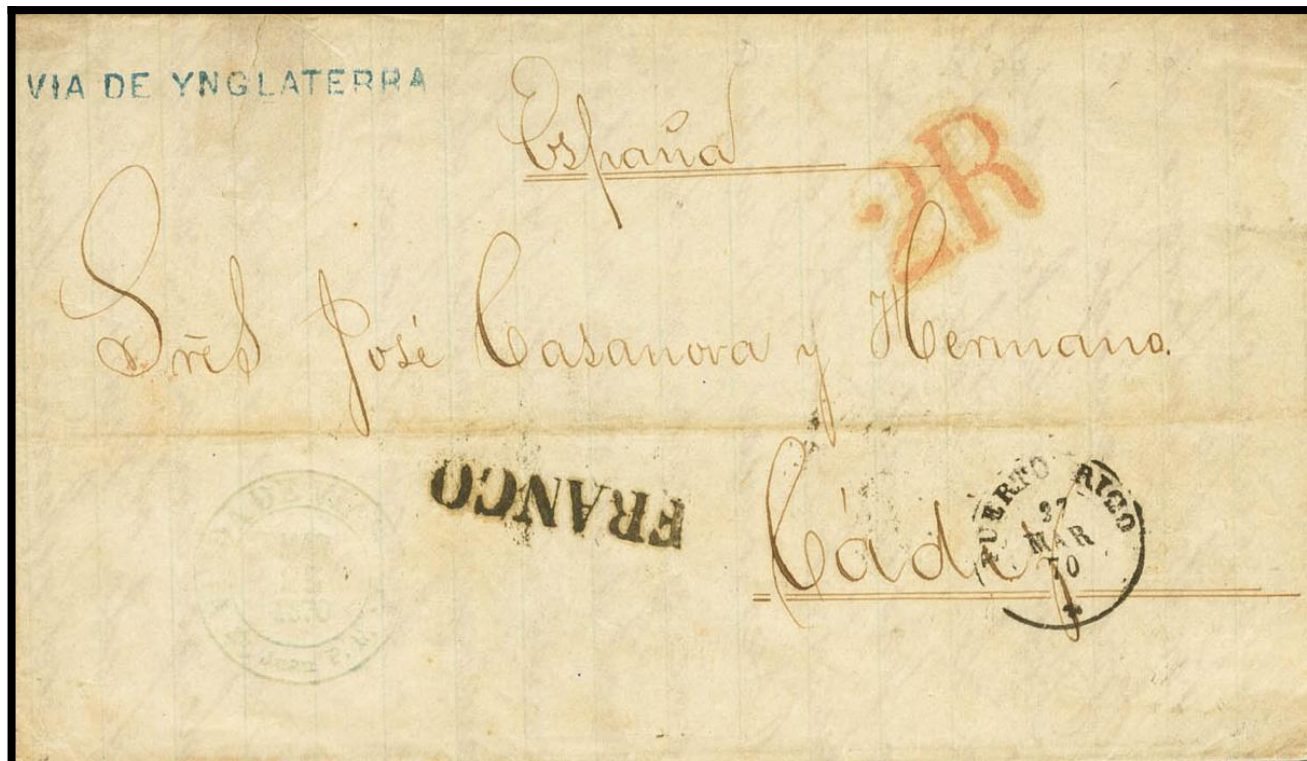 VIA DE YNGLATERRA
España
2R
Sres José Casanova y Hermano.
FRANCO
Cádiz
PUERTO RICO
27
MAR
70